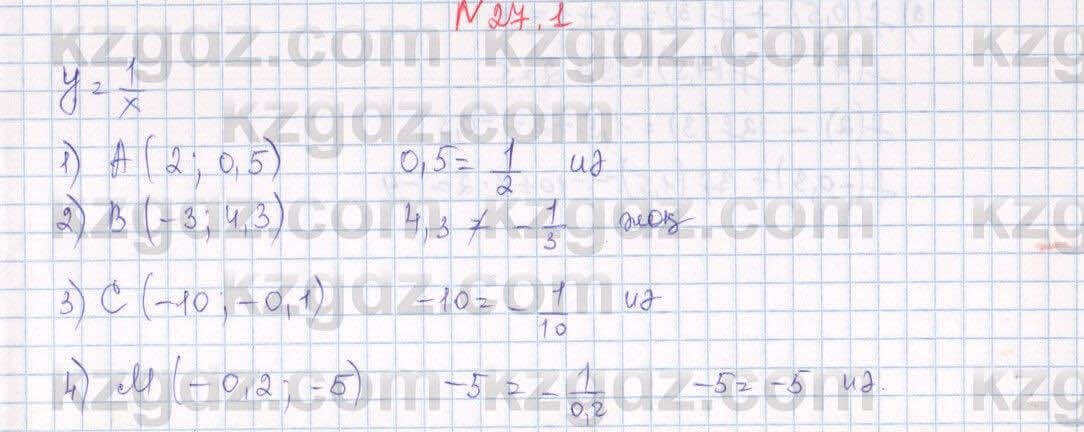 N 27.1
kzgdz.com kzgdz.com kzg
y = 1/x
kzgdz.com
1) A (2; 0,5) 0,5 = 1/2 иә
2) B (-3; 4,3) 4,3 ≠ -1/3 жоқ
kzgdz.com kzgdz.com kzg
3) C (-10; -0,1) -10 = -1/10 иә
kzgdz.com
4) M (-0,2; -5) -5 = -1/0,2 -5 = -5 иә.
kzgdz.com kzgdz.com kzg